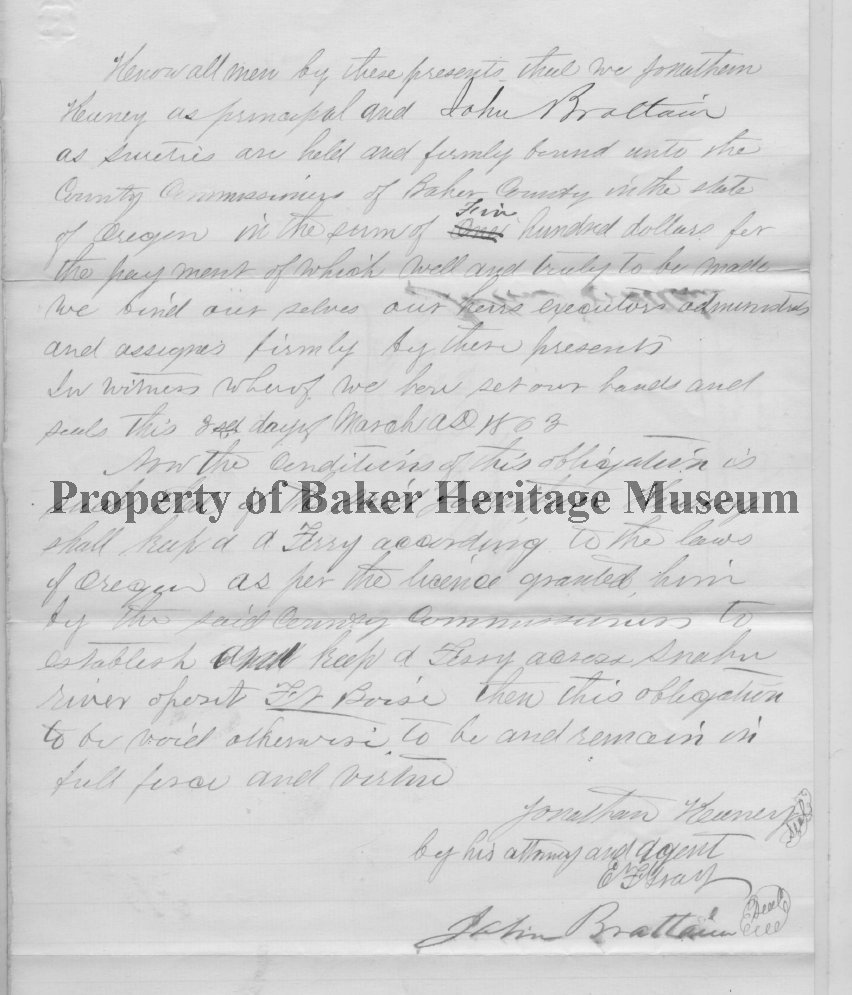 Know all men by these presents that we Jonathan
Keeney as principal and John Brattain
as sureties are held and firmly bound unto the
County Commissioners of Baker County in the state
of Oregon in the sum of Five hundred dollars for
the payment of which well and truly to be made
we bind our selves our heirs executors
and assignes firmly by these presents
In witness wherof we here set our hands and
seals this day of March AD 186
Now the Conditions of this obligation is
Property of Baker Heritage Museum
such that if the said Jonathan
shall keep a Ferry according to the laws
of Oregon as per the licence granted him
by the said County Commissioners to
establish and keep a Ferry across Snake
river oposit Ft Boise then this obligation
to be void otherwise to be and remain in
full force and virtue
Jonathan Keeney Seal
by his attorney and Agent
E
John Brattain Seal